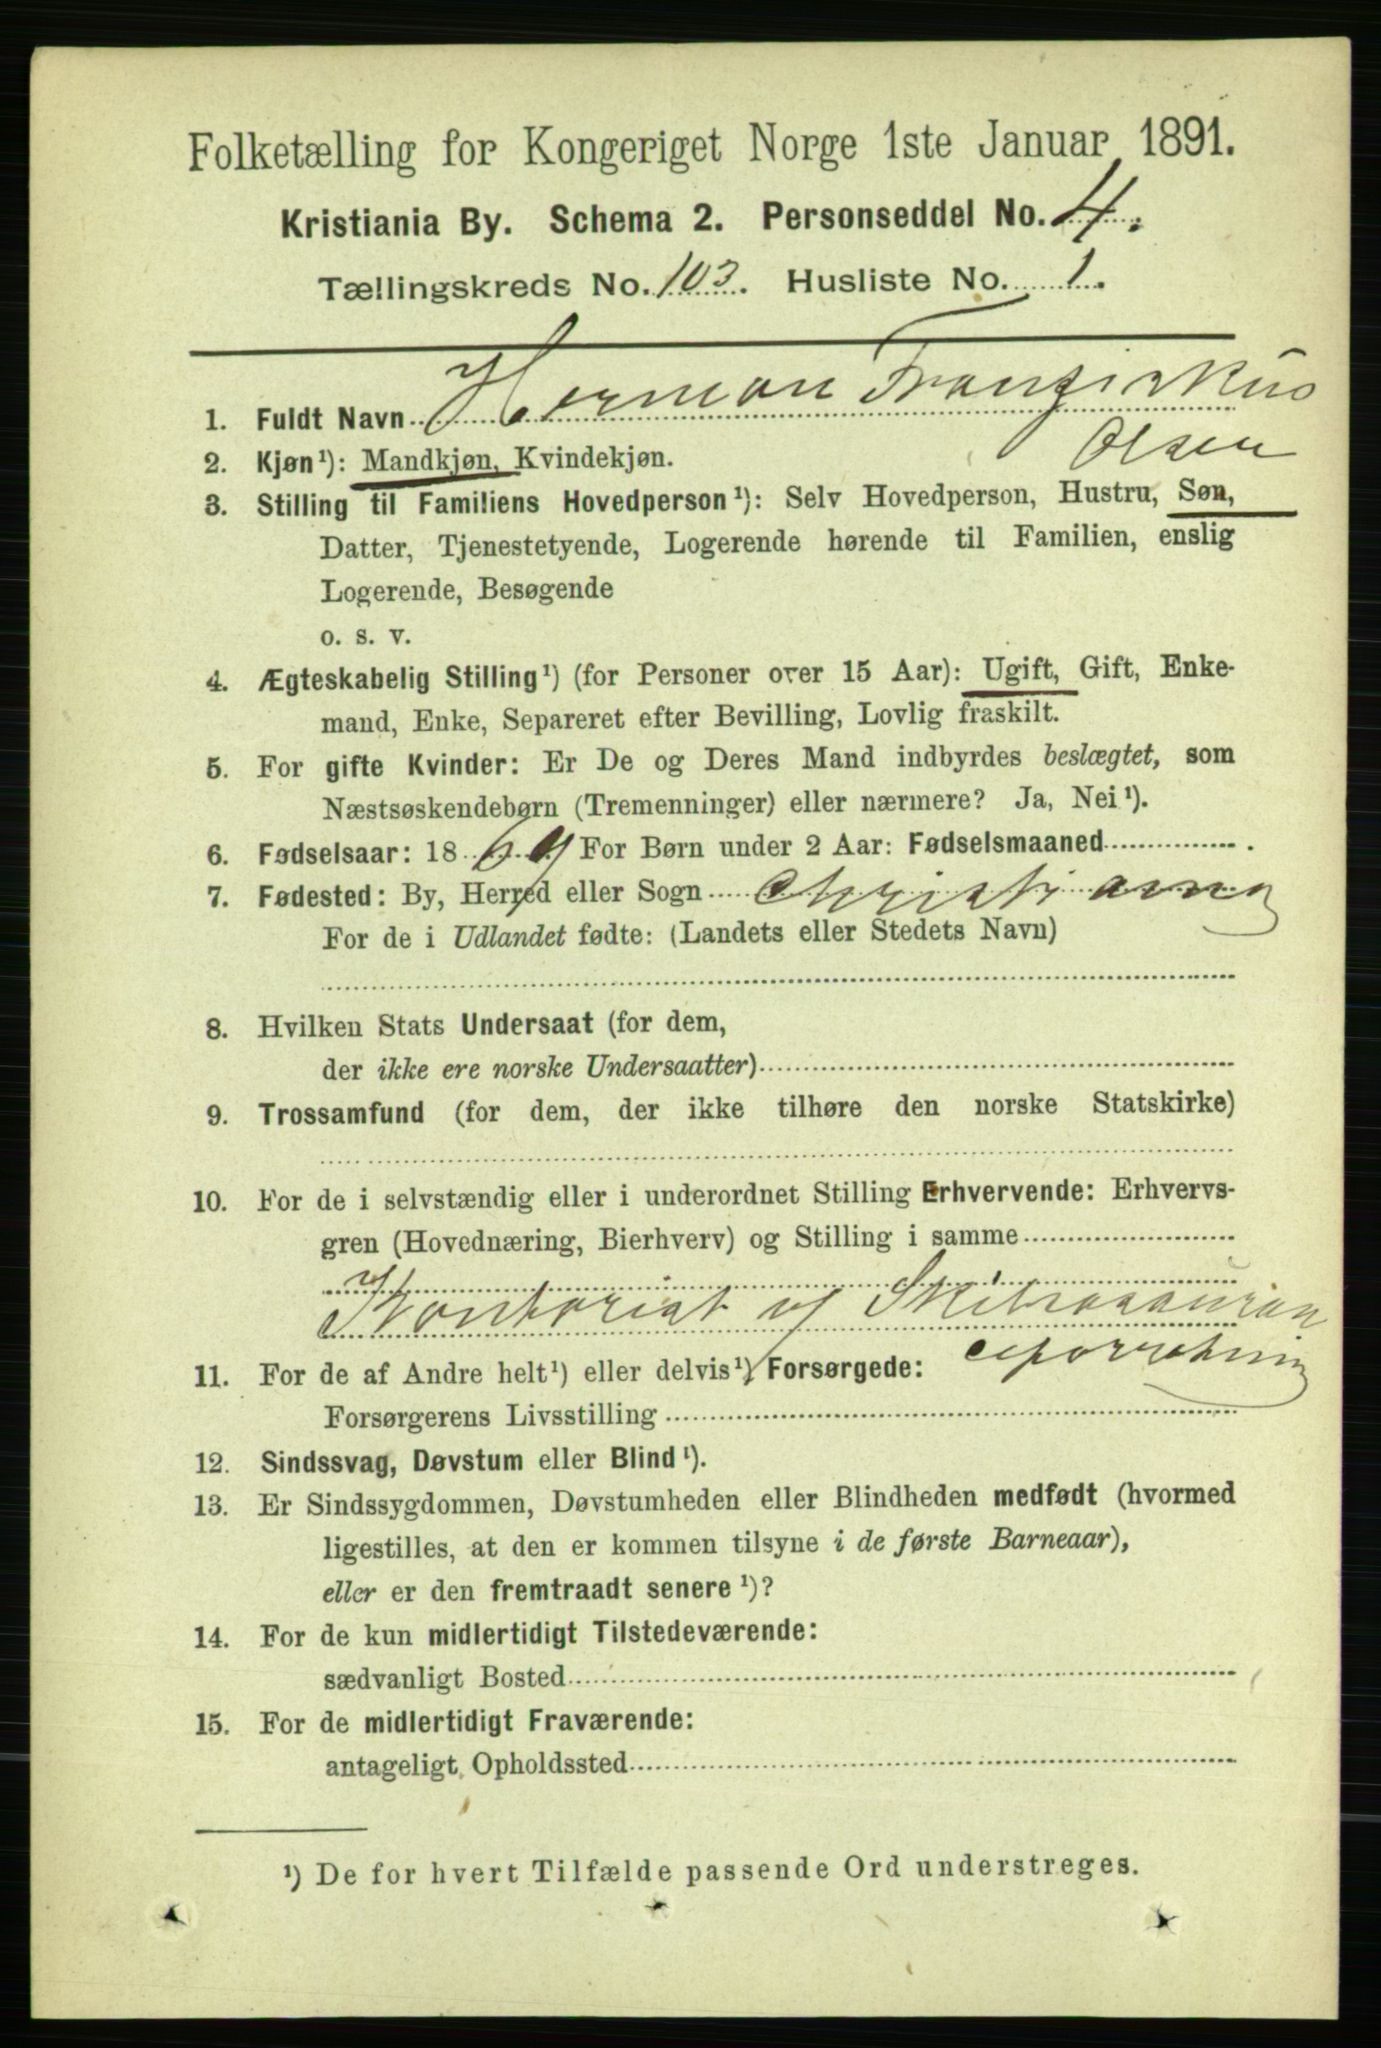 Folketælling for Kongeriget Norge 1ste Januar 1891.
Kristiania By. Schema 2. Personseddel No. 4.
Tællingskreds No. 103. Husliste No. 1.
1. Fuldt Navn Herman Franziskus
Olsen
2. Kjøn¹): Mandkjøn, Kvindekjøn.
3. Stilling til Familiens Hovedperson¹): Selv Hovedperson, Hustru, Søn,
Datter, Tjenestetyende, Logerende hørende til Familien, enslig
Logerende, Besøgende
o. s. v.
4. Ægteskabelig Stilling¹) (for Personer over 15 Aar): Ugift, Gift, Enke-
mand, Enke, Separeret efter Bevilling, Lovlig fraskilt.
5. For gifte Kvinder: Er De og Deres Mand indbyrdes beslægtet, som
Næstsøskendebørn (Tremenninger) eller nærmere? Ja, Nei¹).
6. Fødselsaar: 1869 For Børn under 2 Aar: Fødselsmaaned .
7. Fødested: By, Herred eller Sogn Christiania
For de i Udlandet fødte: (Landets eller Stedets Navn)
8. Hvilken Stats Undersaat (for dem,
der ikke ere norske Undersaatter)
9. Trossamfund (for dem, der ikke tilhøre den norske Statskirke)
10. For de i selvstændig eller i underordnet Stilling Erhvervende: Erhvervs-
gren (Hovednæring, Bierhverv) og Stilling i samme
Kontorist v/ Skibsassuran
11. For de af Andre helt¹) eller delvis¹) Forsørgede:
Forsørgerens Livsstilling
12. Sindssvag, Døvstum eller Blind¹).
13. Er Sindssygdommen, Døvstumheden eller Blindheden medfødt (hvormed
ligestilles, at den er kommen tilsyne i de første Barneaar),
eller er den fremtraadt senere¹)?
14. For de kun midlertidigt Tilstedeværende:
sædvanligt Bosted
15. For de midlertidigt Fraværende:
antageligt Opholdssted
¹) De for hvert Tilfælde passende Ord understreges.